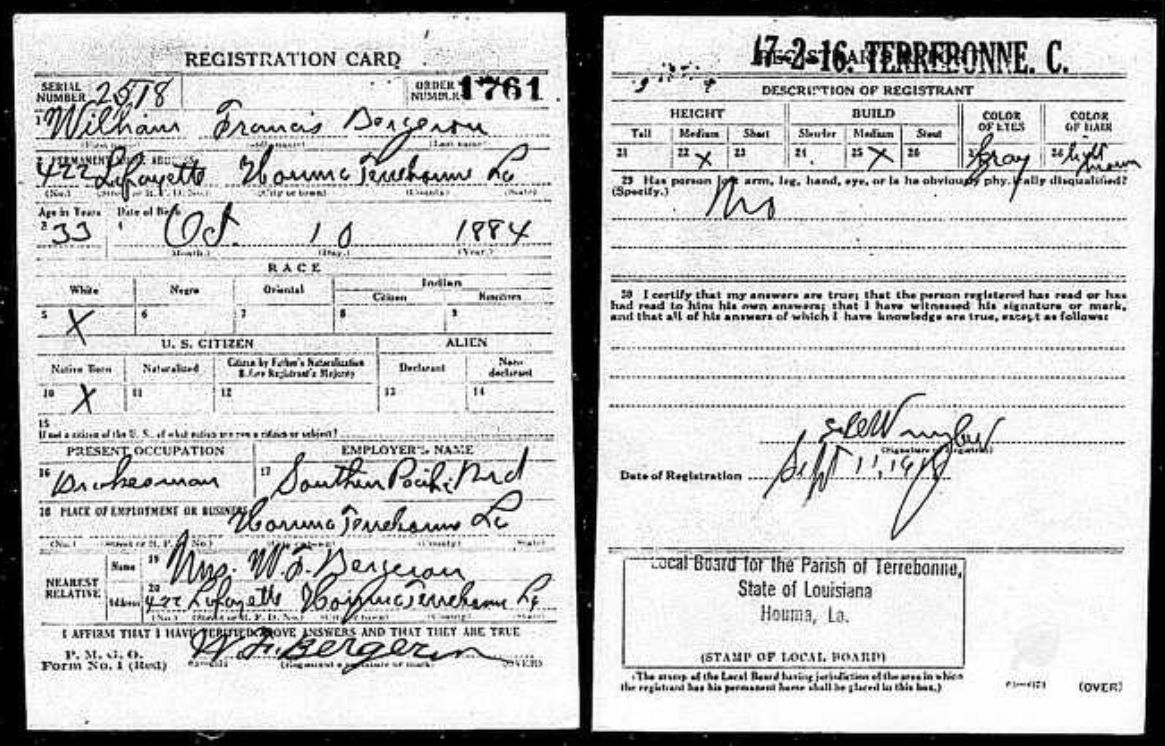 REGISTRATION CARD
SERIAL NUMBER 2518 ORDER NUMBER 1761
1 William Francis Bergeron
(First name) (Middle name) (Last name)
2 PERMANENT HOME ADDRESS
422 Lafayette Houma Terrebonne La
(No.) (Street or R. F. D. No.) (City or town) (County) (State)
Age in Years Date of Birth
3 33 4 Oct. 10 1884
(Month.) (Day.) (Year.)
RACE
White Negro Oriental Indian
Citizen Noncitizen
5 X 6 7 8 9
U. S. CITIZEN ALIEN
Native Born Naturalized Citizen by Father's Naturalization Before Registrant's Majority Declarant Non-declarant
10 X 11 12 13 14
15
If not a citizen of the U. S., of what nation are you a citizen or subject?
PRESENT OCCUPATION EMPLOYER'S NAME
16 Brakesman 17 Southern Pacific
18 PLACE OF EMPLOYMENT OR BUSINESS
Houma Terrebonne La
(No.) (Street or R. F. D. No.) (City or town) (County) (State)
NEAREST RELATIVE
Name 19 Mrs. W. F. Bergeron
Address 20 422 Lafayette Houma Terrebonne La
(No.) (Street or R. F. D. No.) (City or town) (County) (State)
I AFFIRM THAT I HAVE VERIFIED ABOVE ANSWERS AND THAT THEY ARE TRUE
P. M. G. O.
Form No. 1 (Red) W F. Bergeron
(Registrant's signature or mark) (OVER)
17-2-16. TERREBONNE. C.
DESCRIPTION OF REGISTRANT
HEIGHT BUILD COLOR OF EYES COLOR OF HAIR
Tall Medium Short Slender Medium Stout
21 22 X 23 24 25 X 26 27 Gray 28 light brown
29 Has person lost arm, leg, hand, eye, or is he obviously physically disqualified?
(Specify.) No
30 I certify that my answers are true; that the person registered has read or has
had read to him his own answers; that I have witnessed his signature or mark,
and that all of his answers of which I have knowledge are true, except as follows:
(Signature of Registrar)
Date of Registration Sept 11, 1918
Local Board for the Parish of Terrebonne,
State of Louisiana
Houma, La.
(STAMP OF LOCAL BOARD)
(The stamp of the Local Board having jurisdiction of the area in which
the registrant has his permanent home shall be placed in this box.)
(OVER)